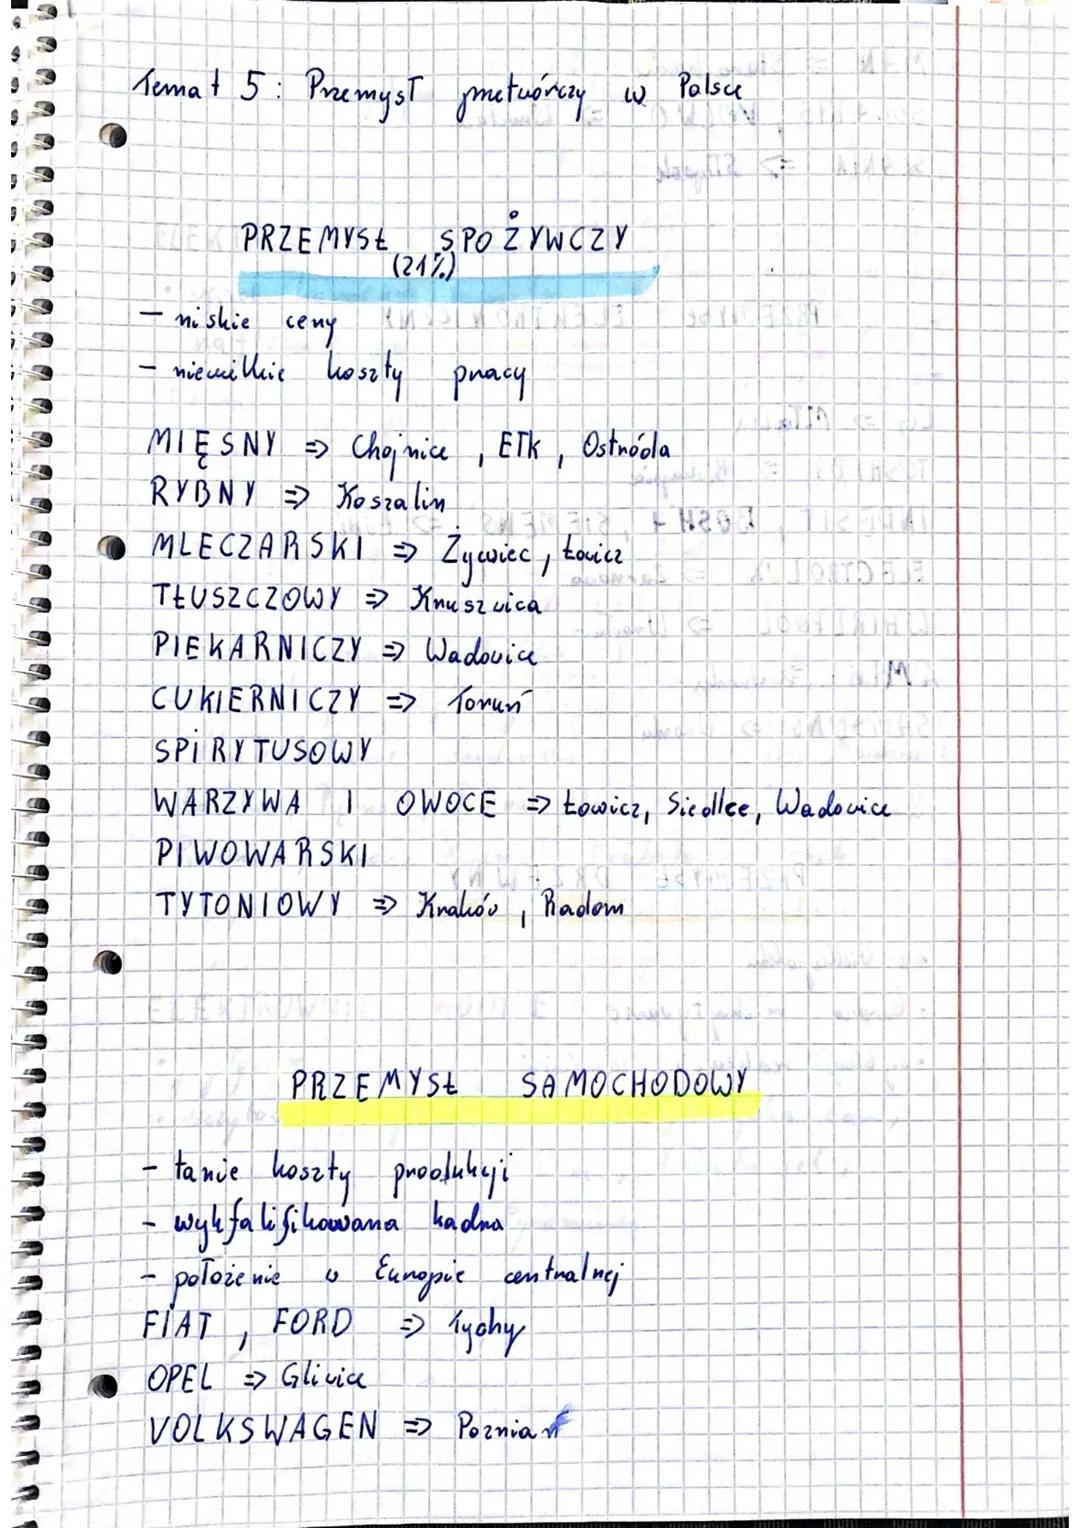 Temat 5: Przemysł przetwórczy w Polsce
PRZEMYSŁ SPOŻYWCZY
(21%)
- niskie ceny
- niewielkie koszty pracy
MIĘSNY => Chojnice, Ełk, Ostróda
RYBNY => Koszalin
MLECZARSKI => Żywiec, Łowicz
TŁUSZCZOWY => Kruszwica
PIEKARNICZY => Wadowice
CUKIERNICZY => Toruń
SPIRYTUSOWY
WARZYWA I OWOCE => Łowicz, Siedlce, Wadowice
PIWOWARSKI
TYTONIOWY => Kraków, Radom
PRZEMYSŁ SAMOCHODOWY
- tanie koszty produkcji
- wykfalifikowana kadra
- położenie w Europie centralnej
FIAT, FORD => Tychy
OPEL => Gliwice
VOLKSWAGEN => Poznian